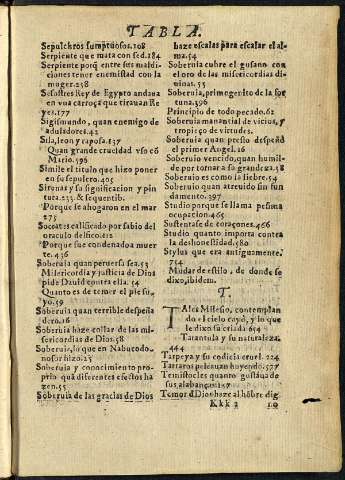 TABLA.
Sepulchros sumptuosos.108
Serpiente que mata con sed.184
Serpiente porq̃ entre seis maldi-
ciones tener enemistad con la
muger.258
Sesostres Rey de Egypto andaua
en vua carroça que tirauan Re
yes.177
Sigismundo, quan enemigo de
aduladores.42
Sila, leon y raposa.837
Quan grande crueldad vso cõ
Mario.596
Simile el titulo que hizo poner
en su sepulcro.405
Sirenas y su significacion y pin
tura.233. & sequentib.
Porque se ahogaron en el mar
275
Socrates calificado por sabio del
oraculo delfico.212
Porque fue condenado a muer
te.436
Soberuia quan peruersa sea.53
Misericordia y justicia de Dios
pide Dauid contra ella.54
Quanto es de temer el pie su-
yo.59
Soberuia quan terrible despeña
dero.16
Soberuia haze collar de las mi-
sericordias de Dios.58
Soberuia, lo que en Nabucodo-
nosor hizo.25
Soberuia y conocimiento pro-
prio quã diferentes efectos ha
zen.55
Soberuia de las gracias de Dios
haze escalas para escalar el al-
ma.54
Soberuia cubre el gusano con
el oro de las misericordias di-
uinas.55
Soberuia, primogenito de la for
tuna.596
Principio de todo pecado.62
Soberuia manantial de vicios, y
tropieço de virtudes.
Soberuia quan presto despeñó
el primer Angel.16
Soberuio vencido, quan humil-
de por tornar a su grandeza.58
Soberuio es como la liebre.54
Soberuio quan atreuido sin fun
damento.397
Studio porque se llama pessima
ocupacion.465
Sustentase de coraçones.466
Studio quanto importa contra
la deshonestidad.480
Stylus que era antiguamente.
714
Mudar de estilo, de donde se
dixo, ibidem.
T.
TAles Milesio, contemplan
do el cielo cayó, y lo que
le dixo su criada 614
Tarantula y su naturaleza.
444
Tarpeya y su codicia cruel.224
Tartaros peleauan huyendo.527
Temistocles quanto gustaua de
sus alabanças.157
Temor d̃ Dios haze al hõbre dig
Kkk 2 no